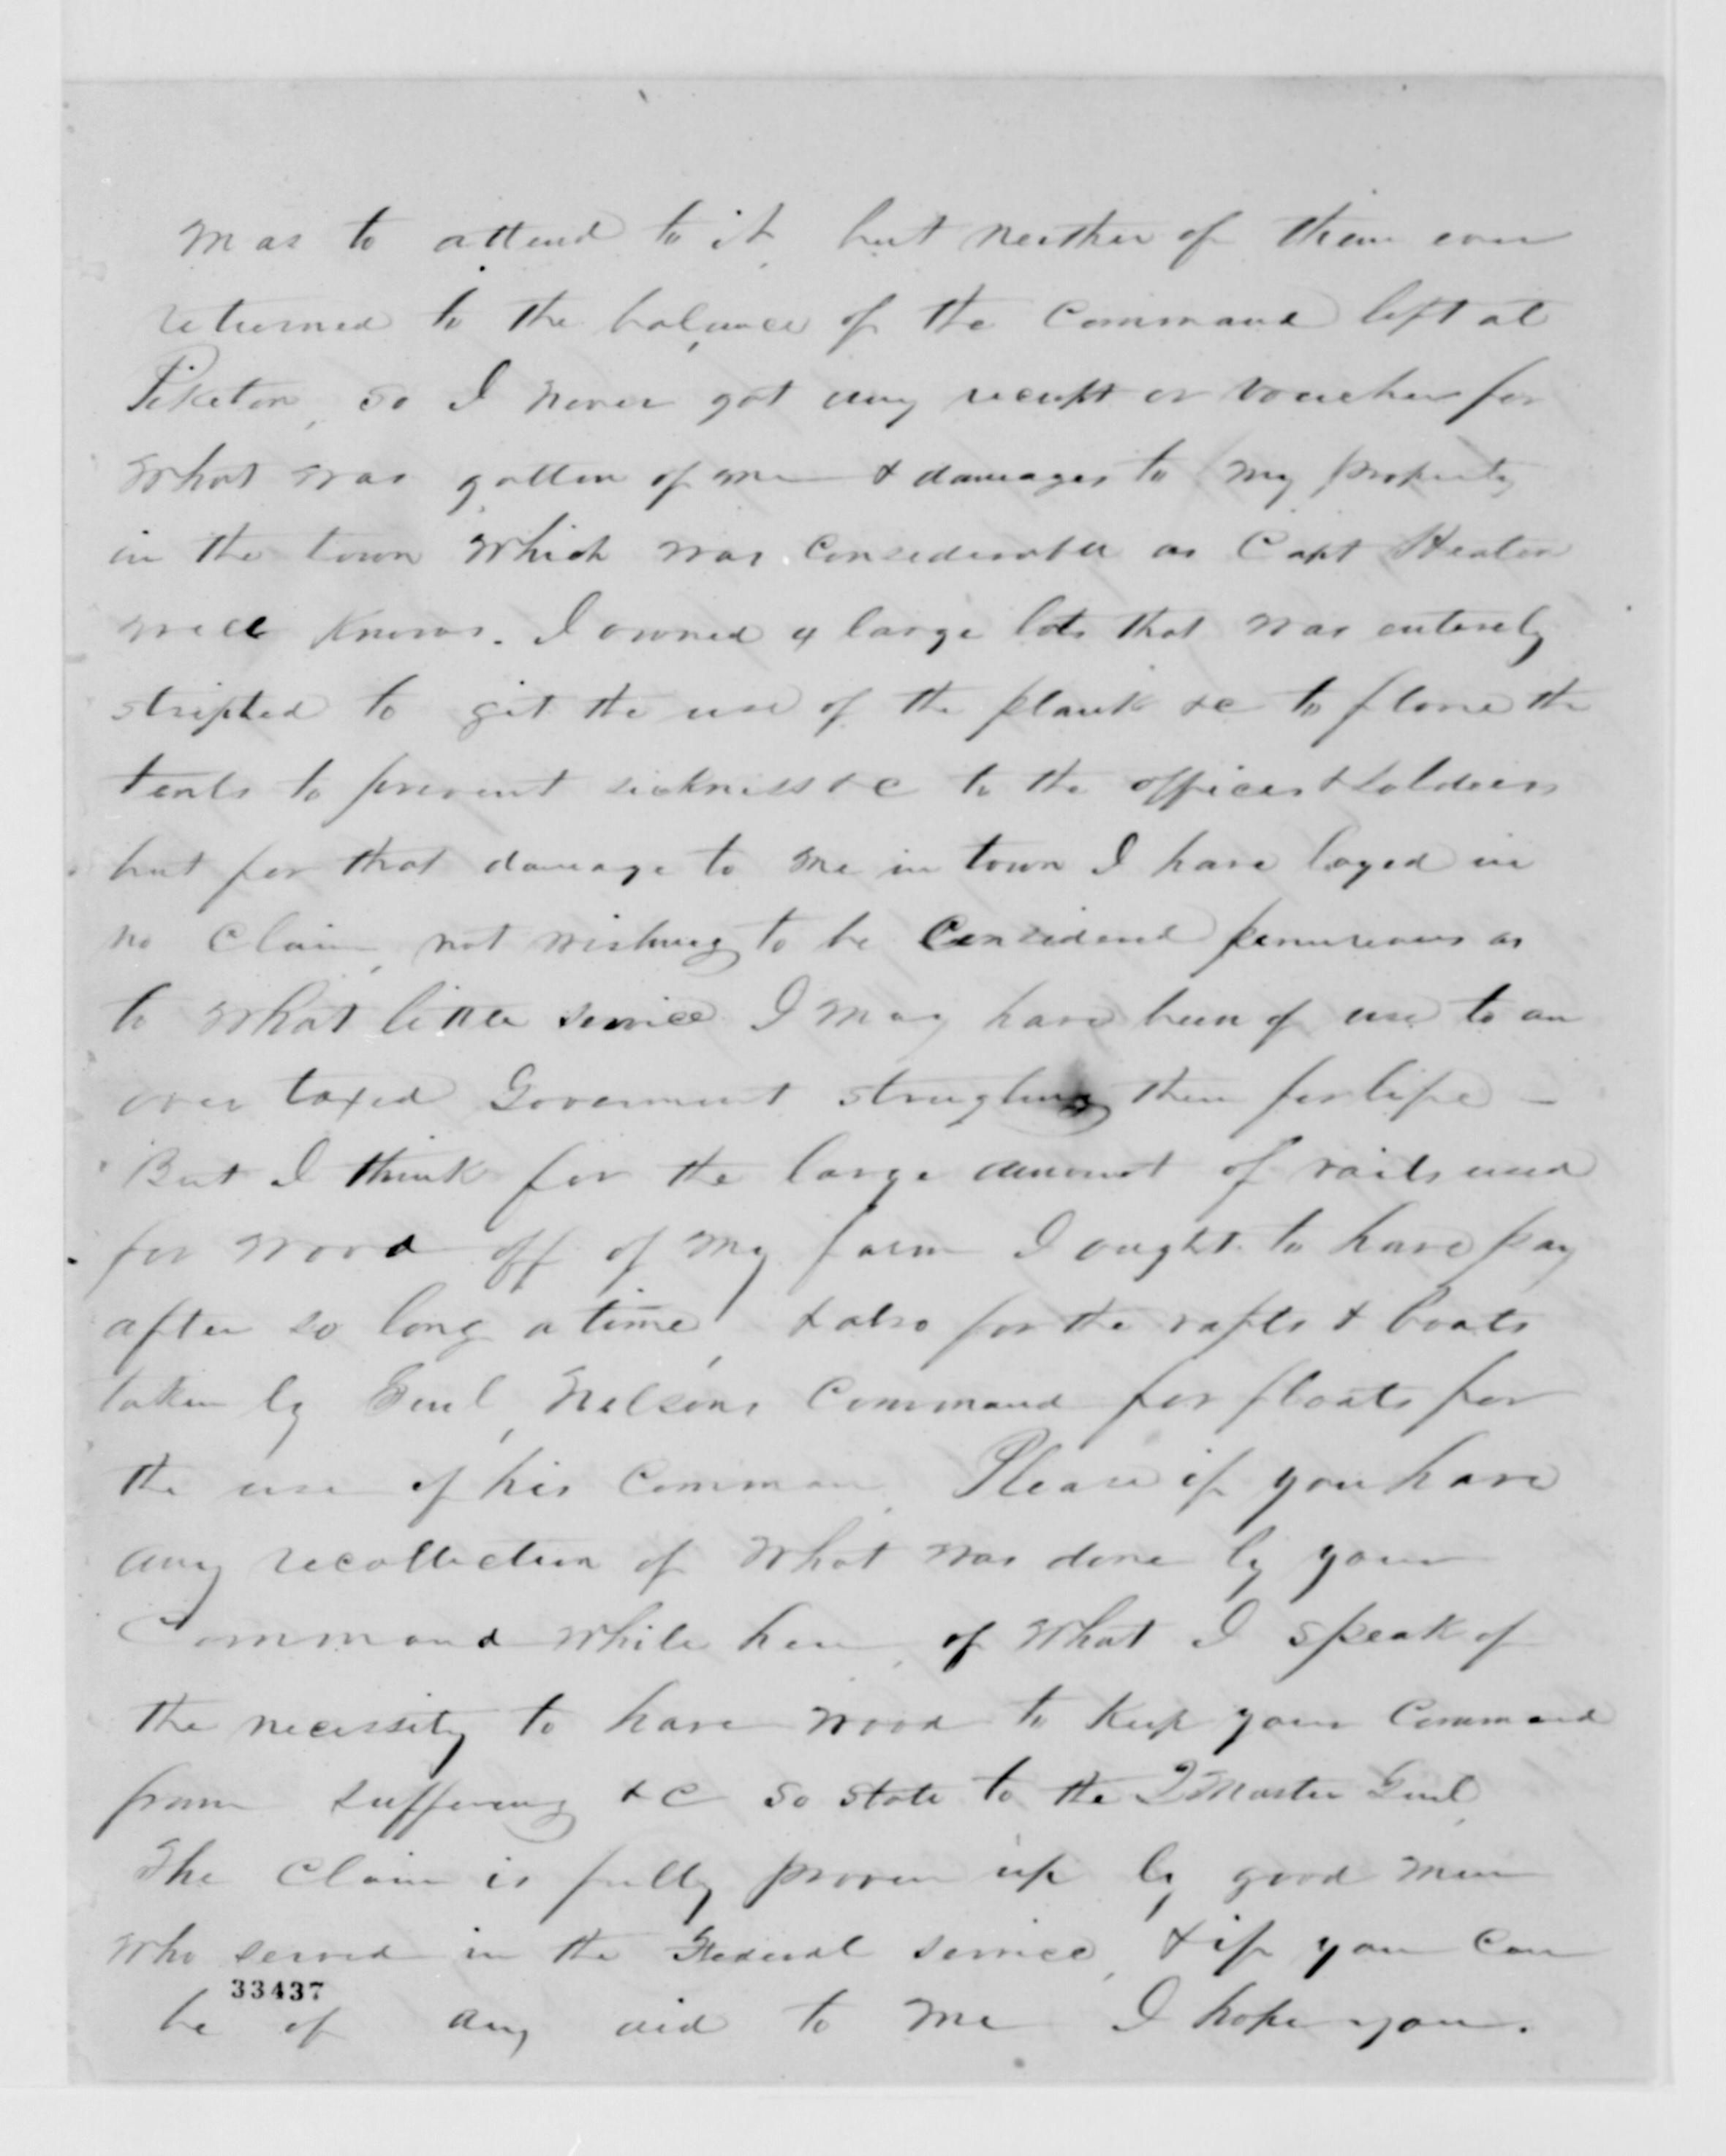 was to attend to it, but neither of them ever
returned to the balance of the Command left at
Piketon, so I never got any receipt or voucher for
what was gotten of me & damages to my property
in the town which was considerable as Capt Heaton
well knows. I owned 4 large lots that was entirely
stripted to git the use of the plank &c to floore the
tents to prevent sickness &c to the officers & Soldiers
but for that damage to me in town I have layed in
no claim, not wishing to be considered penureous as
to what little service I may have been of use to an
over taxed Goverment strugling then for life –
But I think for the large amount of rails used
for wood off of my farm I ought to have pay
after so long a time, & also for the rafts & boats
taken by Genl, Nelsons Command for floats for
the use of his Comman. Please if you have
any recollection of what was done by your
Command while here, of what I speak of
the necessity to have wood to keep your Command
from suffering &c so state to the Q Master Genl,
The Claim is fully proven up by good men
who served in the Federal service, & if you can
33437
be of any aid to me I hope you.